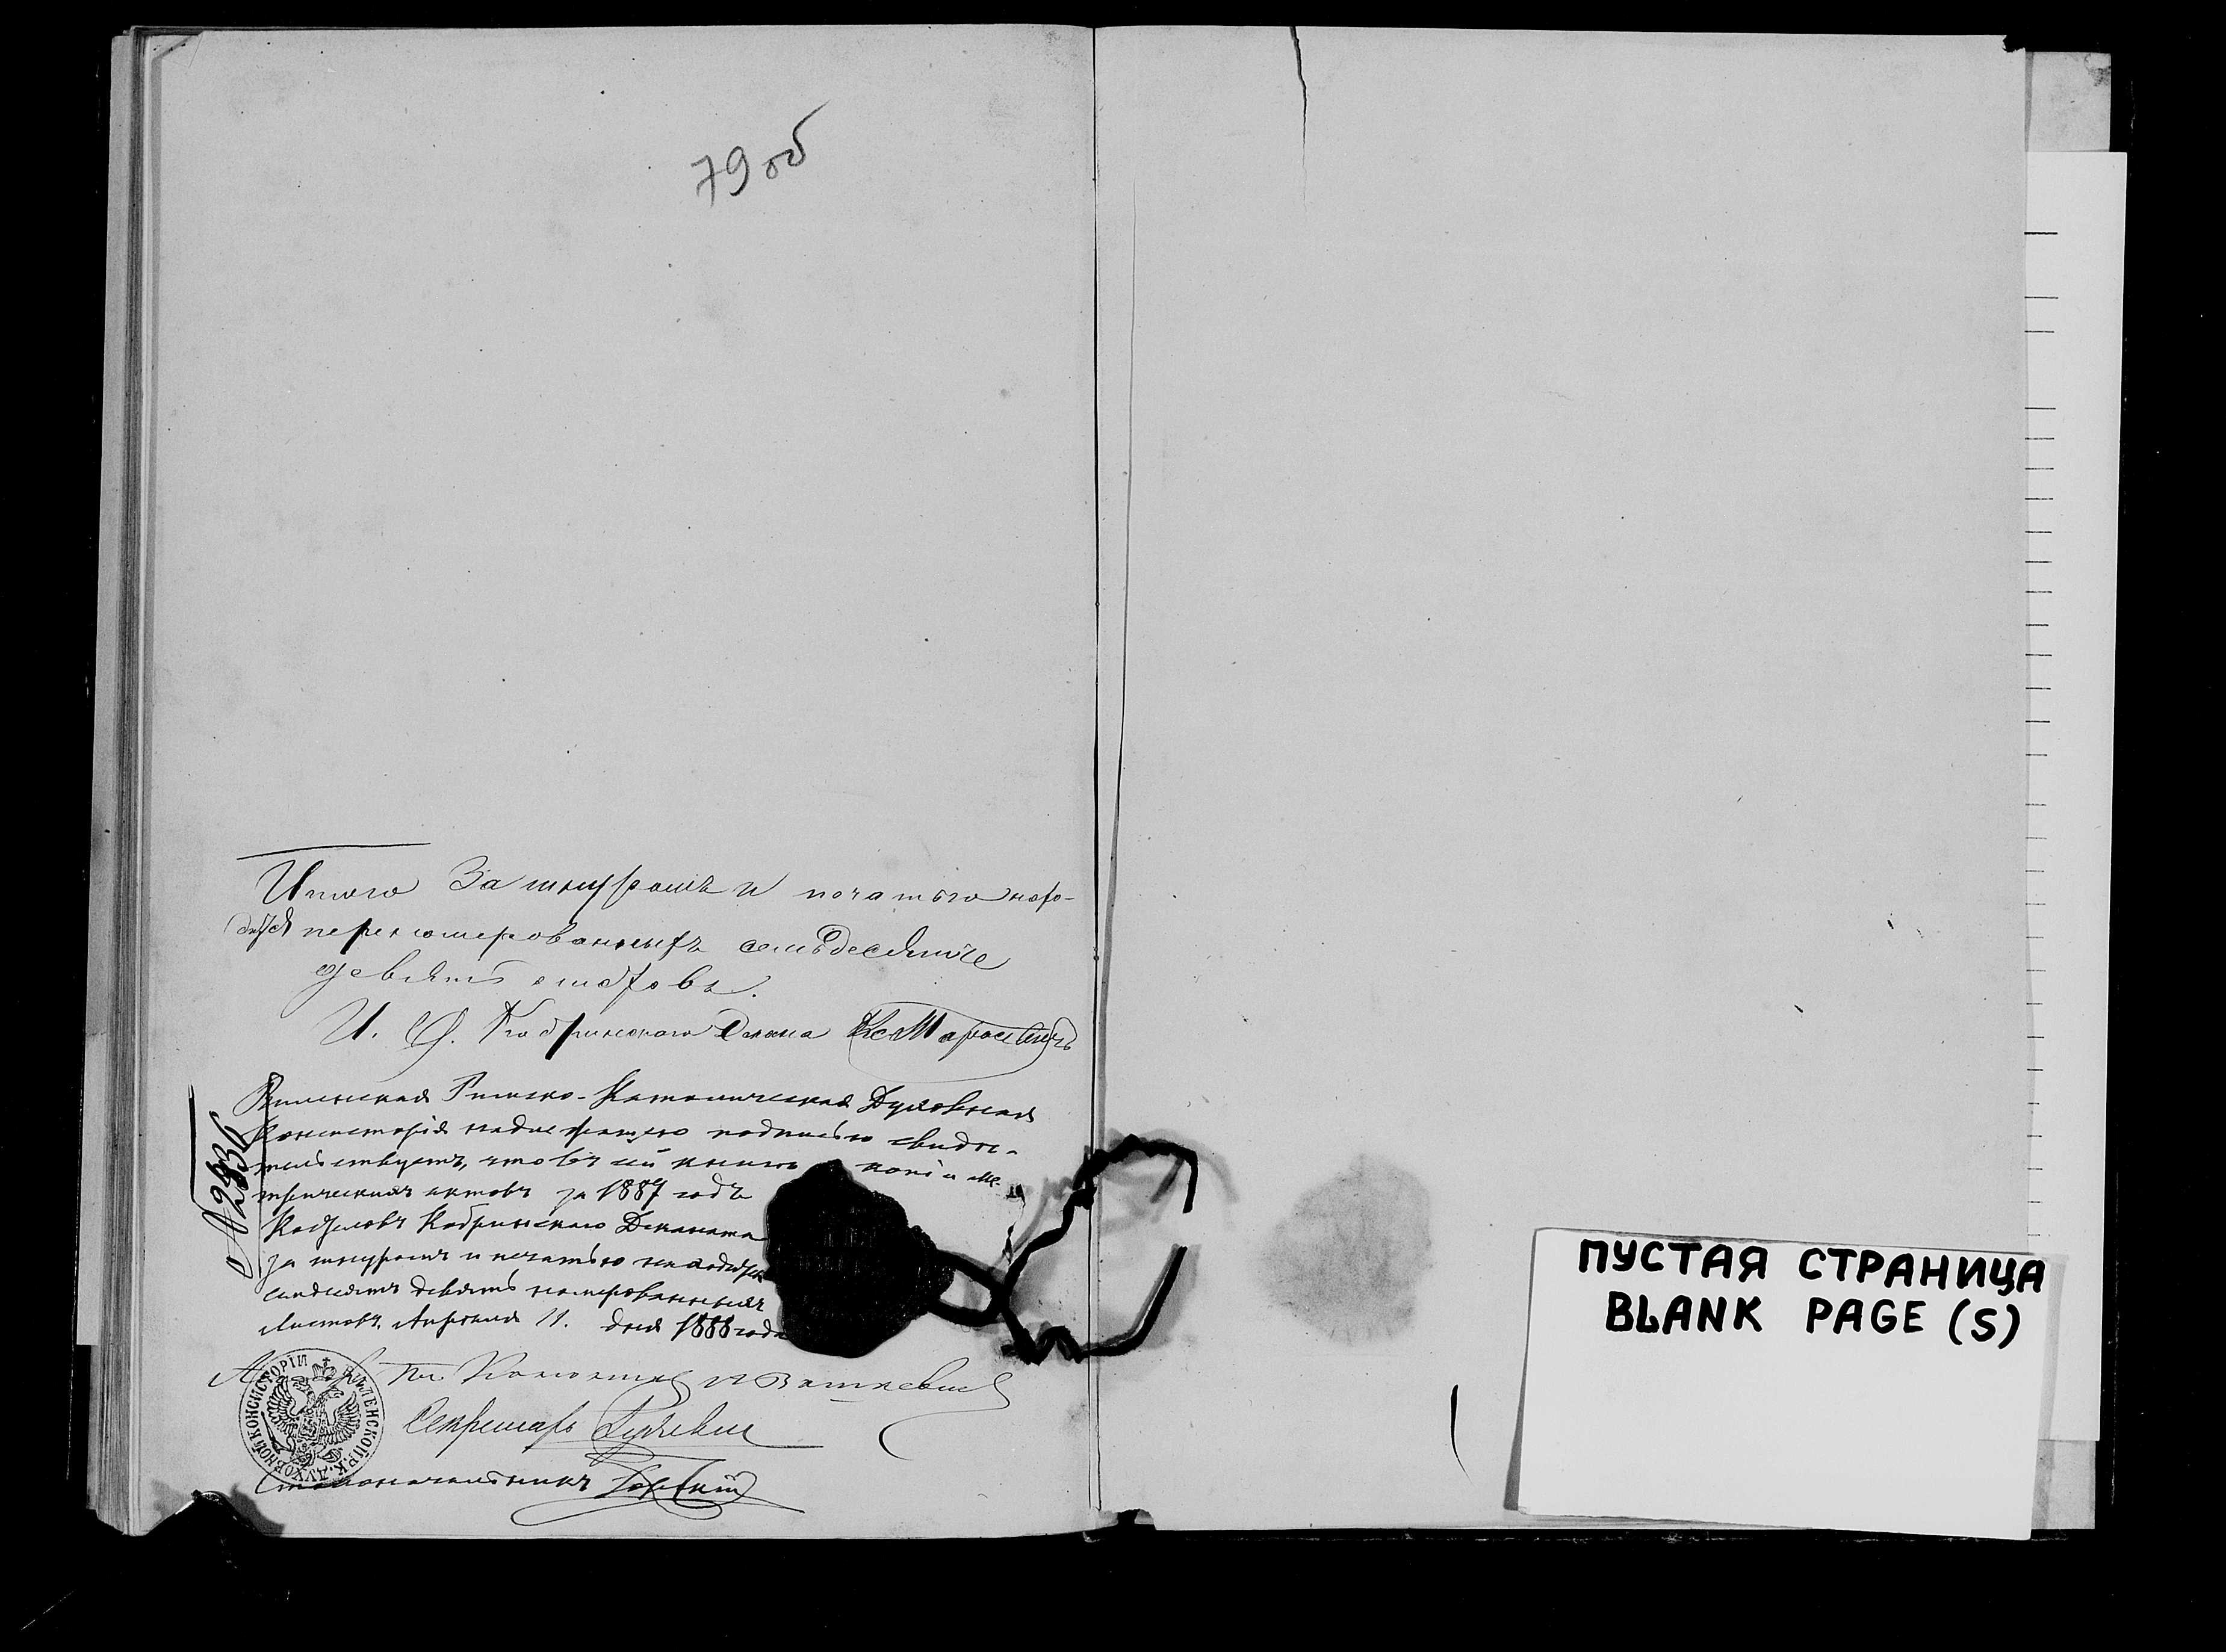 79 об
Итого За шнуромъ и печатью нахо-
дится перенумерованныхъ семьдесятъ
девять листовъ.
И. Д. Кобринскаго Декана Кс.
№ 2836
Виленская Римско-Католическая Духовная
Консисторія надлежащею подписью свидѣ-
тельствуетъ, что въ сей книгѣ копіи ме-
трическихъ актовъ за 1887 годъ
Кобринскаго Деканата
за шнуромъ и печатью находится
семдесятъ девять номерованныхъ
Листовъ. Апрѣля 11. дня 1888 года
Секретарь
Столоначальникъ
ВИЛЕНСКОЙ Р.К. ДУХОВНОЙ КОНСИСТОРІИ
ПУСТАЯ СТРАНИЦА
BLANK PAGE (S)